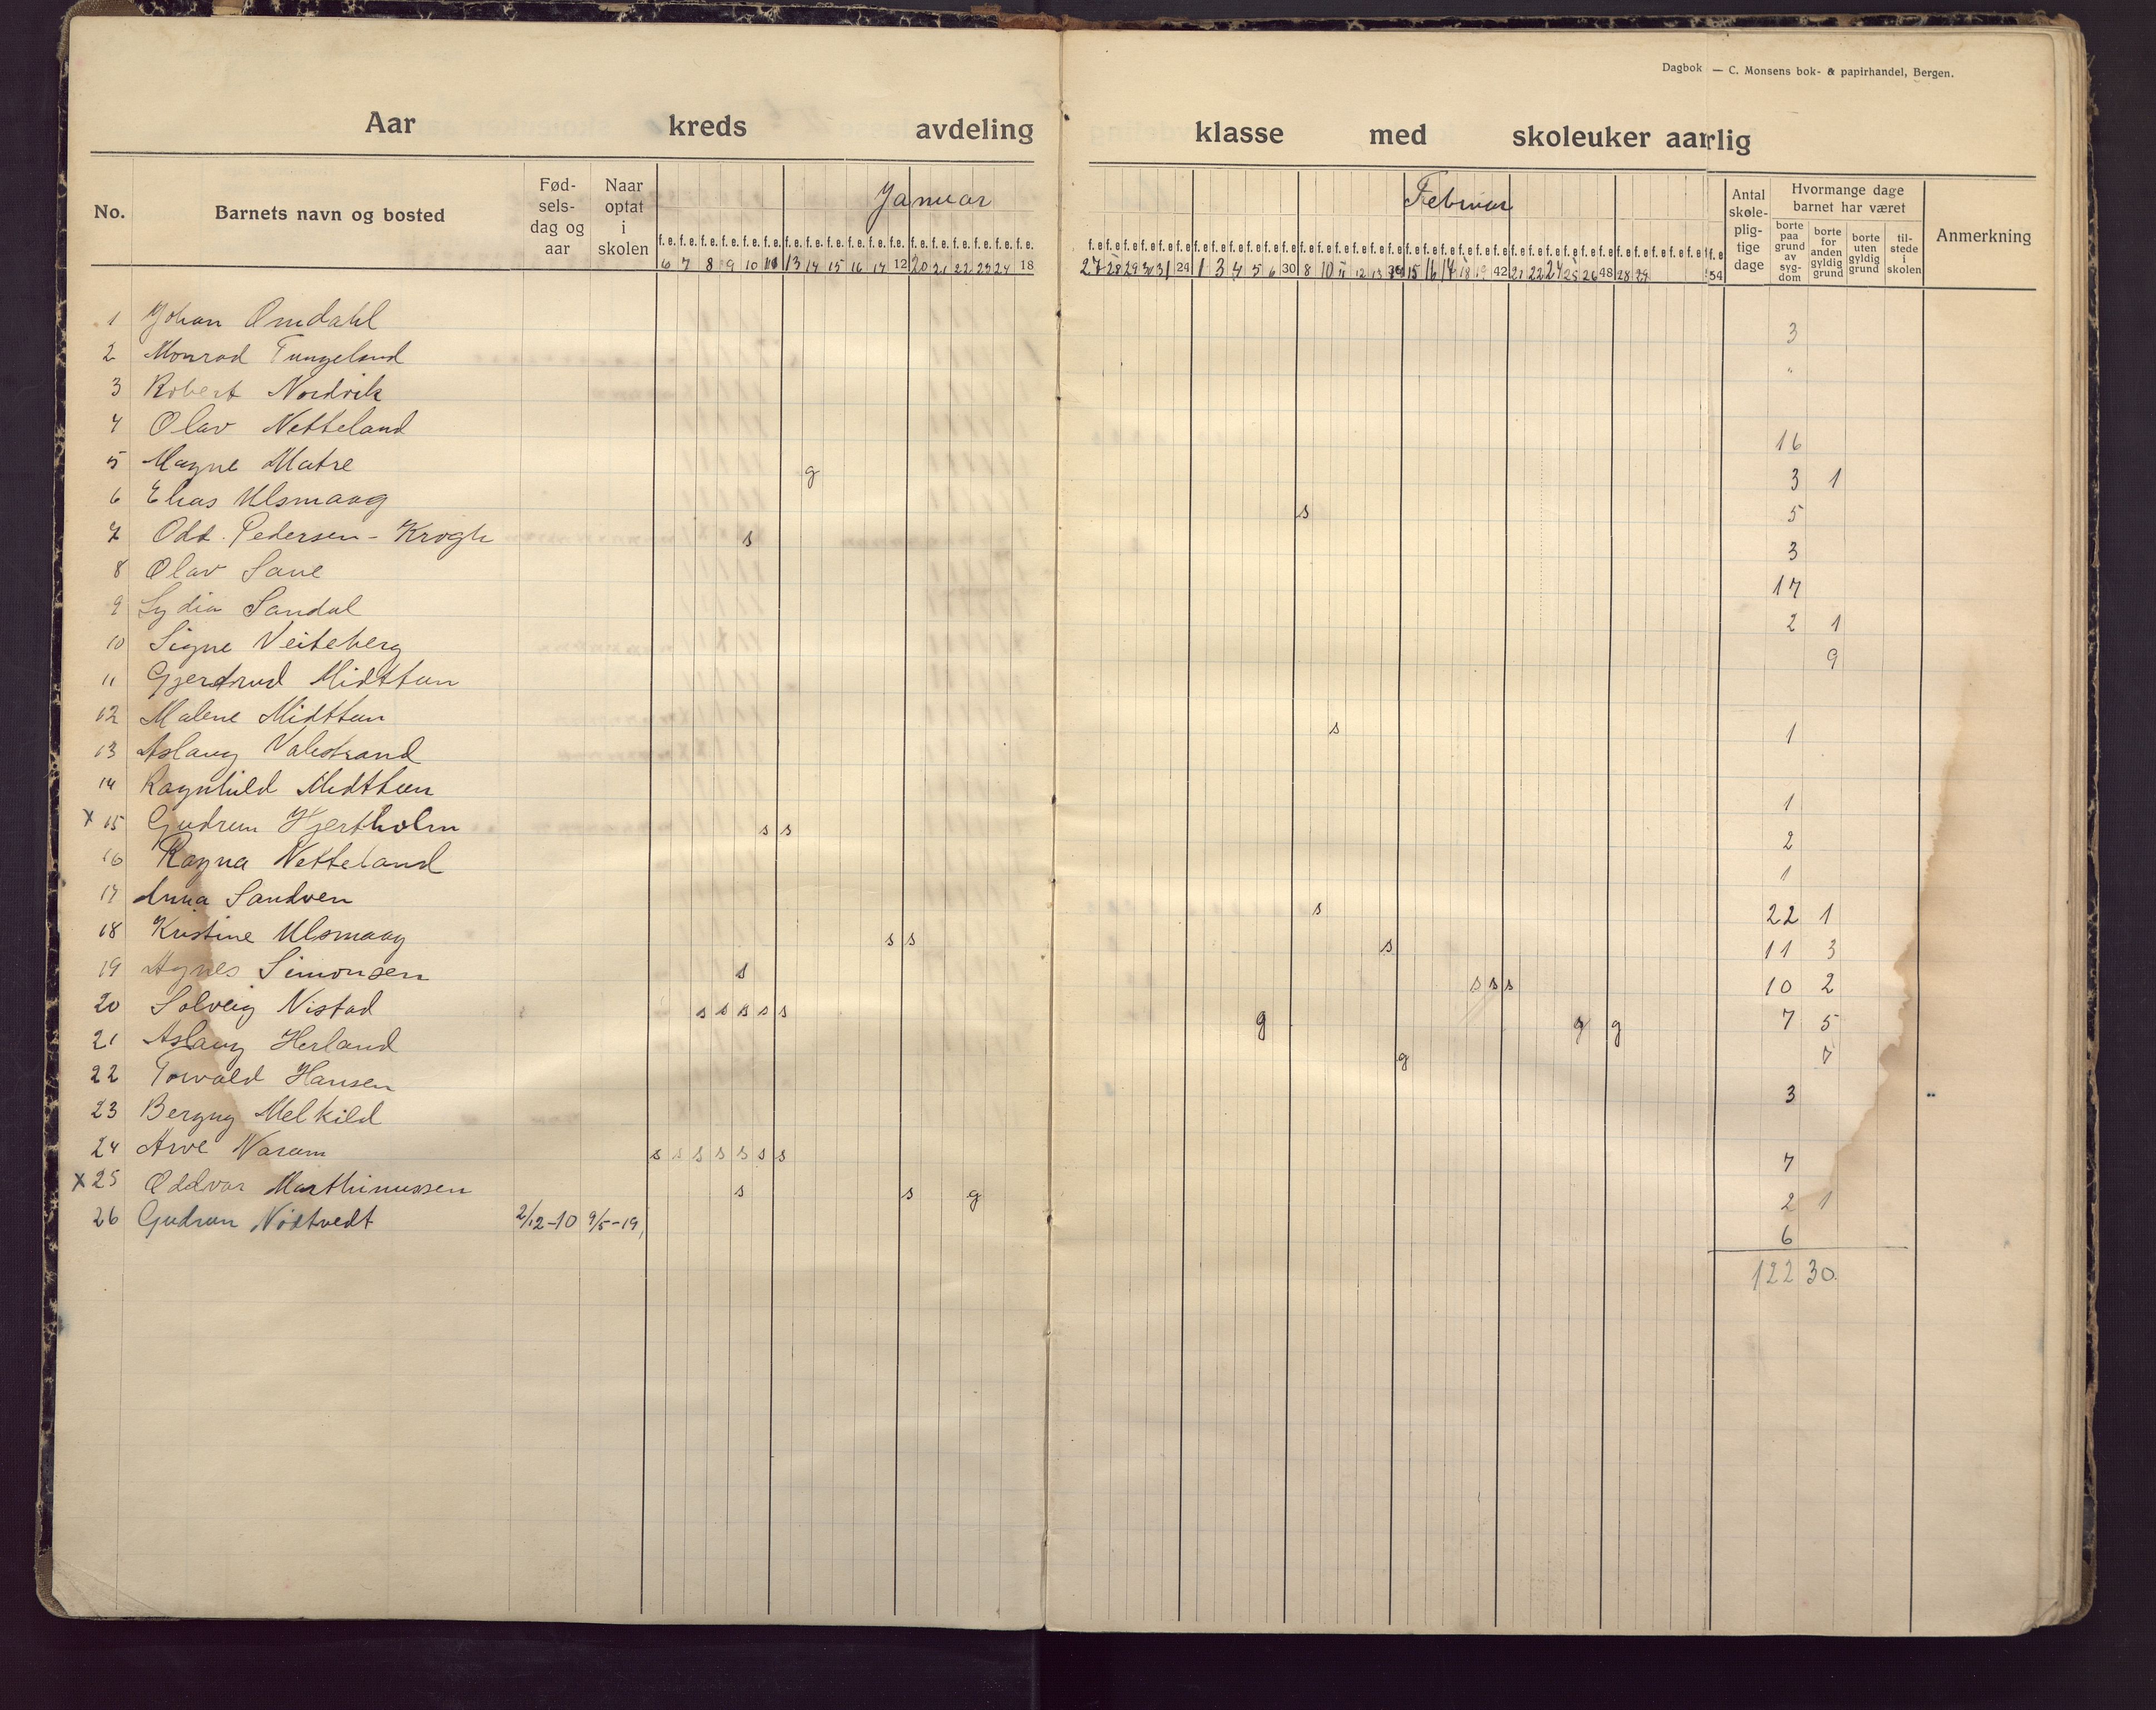 Dagbok — C. Monsens bok- & papirhandel, Bergen.
Aar kreds avdeling klasse med skoleuker aarlig
No. Barnets navn og bosted Fød-sels-dag og aar Naar optat i skolen Januar Februar Antal skole-plig-tige dage Hvormange dage barnet har været Anmerkning
borte paa grund av syg-dom borte for anden gyldig grund borte uten gyldig grund til-stede i skolen
f. e. f. e. f. e. f. e. f. e. f. e. f. e. f. e. f. e. f. e. f. e. f. e. f. e. f. e. f. e. f. e. f. e. f. e.
6 7 8 9 10 11 13 14 15 16 17 12 20 21 22 23 24 18 27 28 29 30 31 24 1 3 4 5 6 30 8 10 11 12 13 14 15 16 17 18 19 42 21 22 24 25 26 48 28 29 54
1 Johan Omdahl 3
2 Monrad Tungeland "
3 Robert Nordvik
4 Olav Netteland 16
5 Magne Matre g 3 1
6 Elias Ulsmaag s 5
7 Odd. Pedersen - Krogh s 3
8 Olav Saue 17
9 Lydia Sandal 2 1
10 Signe Veiteberg 9
11 Gjerdrud Midttun
12 Malene Midttun s 1
13 Aslaug Valestrand
14 Ragnhild Midttun 1
x 15 Gudrun Hjertholm s s 2
16 Ragna Netteland 1
17 Anna Sandven s 22 1
18 Kristine Ulsmaag s s s 11 3
19 Agnes Simonsen s s s s 10 2
20 Solveig Nistad s s s s s g g g 7 5
21 Aslaug Herland g 7
22 Torvald Hansen 3
23 Bergny Melkild
24 Arve Narum s s s s s s s 7
x 25 Oddvar Marthinussen s s g 2 1
26 Gudrun Nödtvedt 2/12-10 9/5-19, 6
122 30.